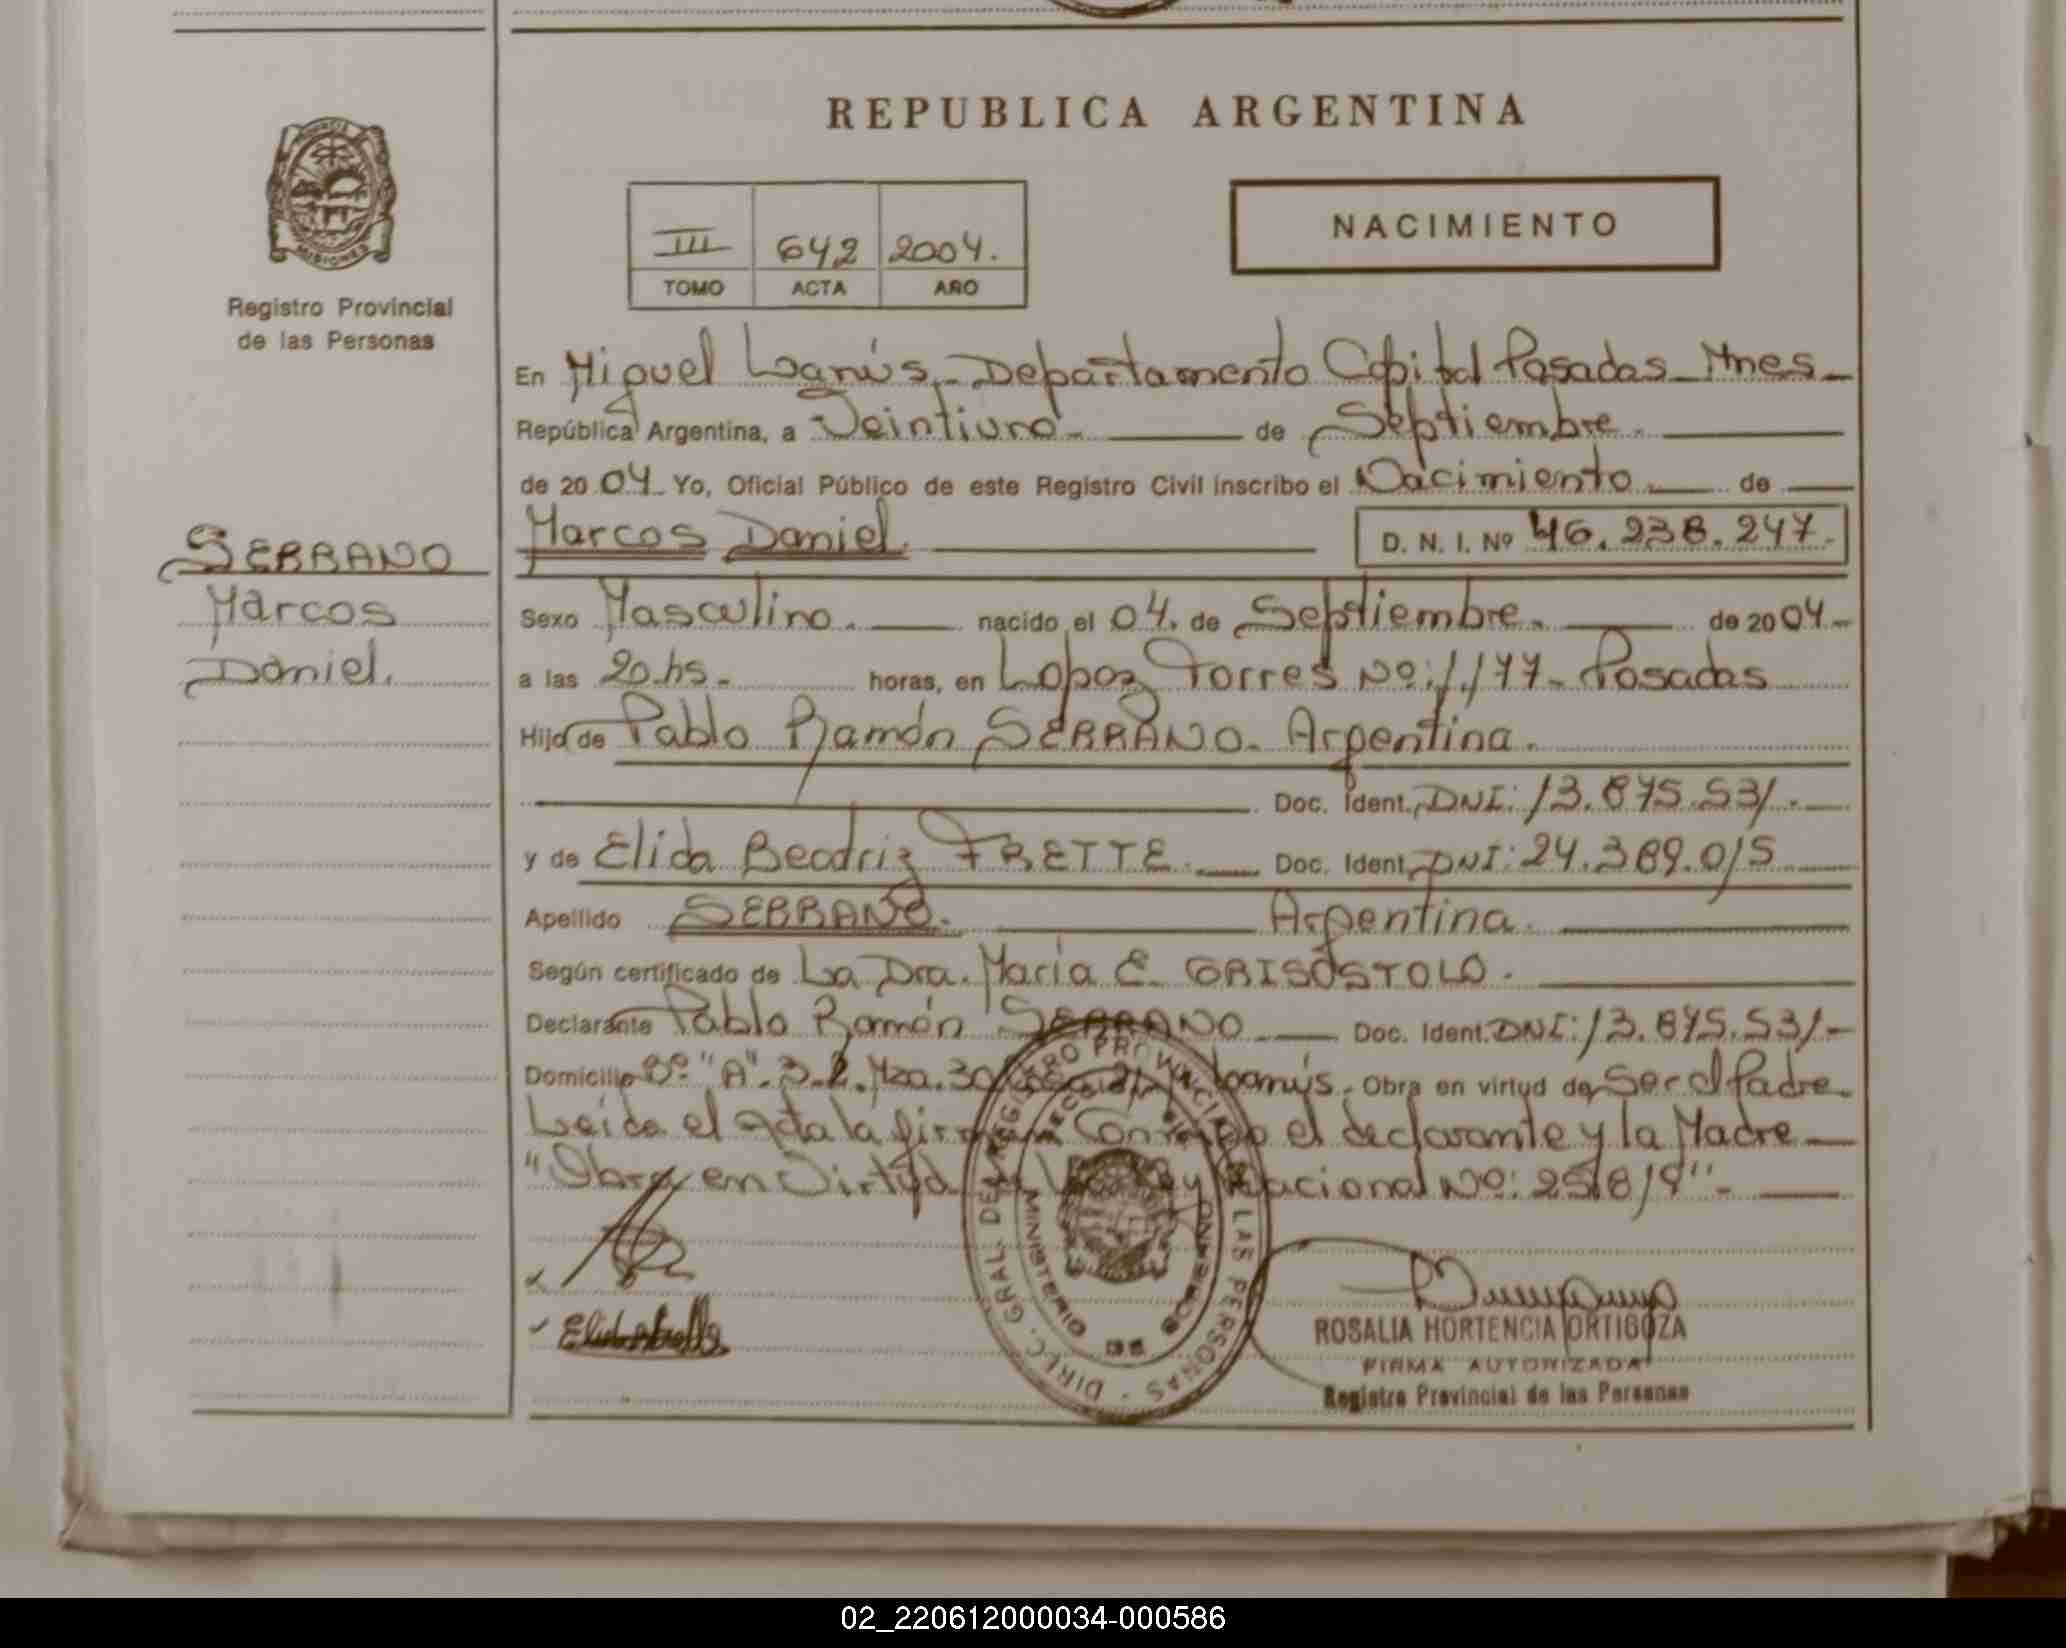 REPUBLICA ARGENTINA
NACIMIENTO
III 642 2004.
TOMO ACTA AÑO
MISIONES
Registro Provincial
de las Personas
SERRANO
Marcos
Daniel.
En Miguel Lanús, Departamento Capital Posadas Mnes
República Argentina, a Veintiuno de Septiembre.
de 2004 Yo, Oficial Público de este Registro Civil inscribo el Nacimiento de
Marcos Daniel. D. N. I. Nº 46.238.247.
Sexo Masculino. nacido el 04. de Septiembre. de 2004.
a las 20.hs. horas, en Lopez Torres Nº: 1.177. Posadas
Hijo de Pablo Ramón SERRANO. Argentina.
Doc. Ident. DNI: 13.875.531.
y de Elida Beatriz FRETTE. Doc. Ident. DNI: 24.389.015
Apellido SERRANO. Argentina.
Según certificado de La Dra. María E. GRISÓSTOLO.
Declarante Pablo Ramón SERRANO Doc. Ident. DNI: 13.875.531.-
Domicilio Bº "A". 3-2. Mza. 30 Obra en virtud de Ser el Padre
Leída el acta la firman Conmigo el declarante y la Madre
"Obra en Virtud Ley Nacional Nº: 25.819".-
DIREC. GRAL. DEL REGISTRO PROVINCIAL DE LAS PERSONAS
MINISTERIO DE GOBIERNO
ROSALIA HORTENCIA ORTIGOZA
FIRMA AUTORIZADA
Registro Provincial de las Personas
02_220612000034-000586